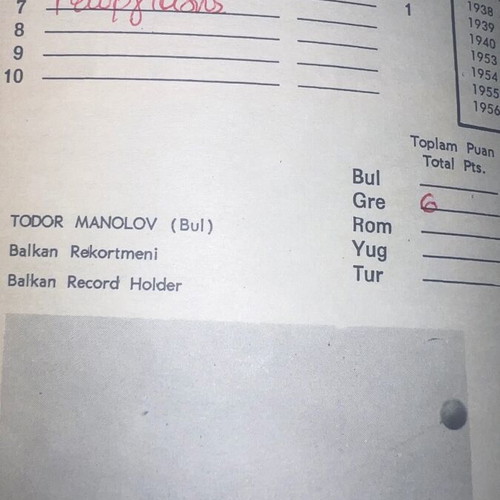 7
8
9
10
1
1938
1939
1940
1953
1954
1955
1956
Toplam Puan
Total Pts.
Bul
Gre 6
Rom
Yug
Tur
TODOR MANOLOV (Bul)
Balkan Rekortmeni
Balkan Record Holder